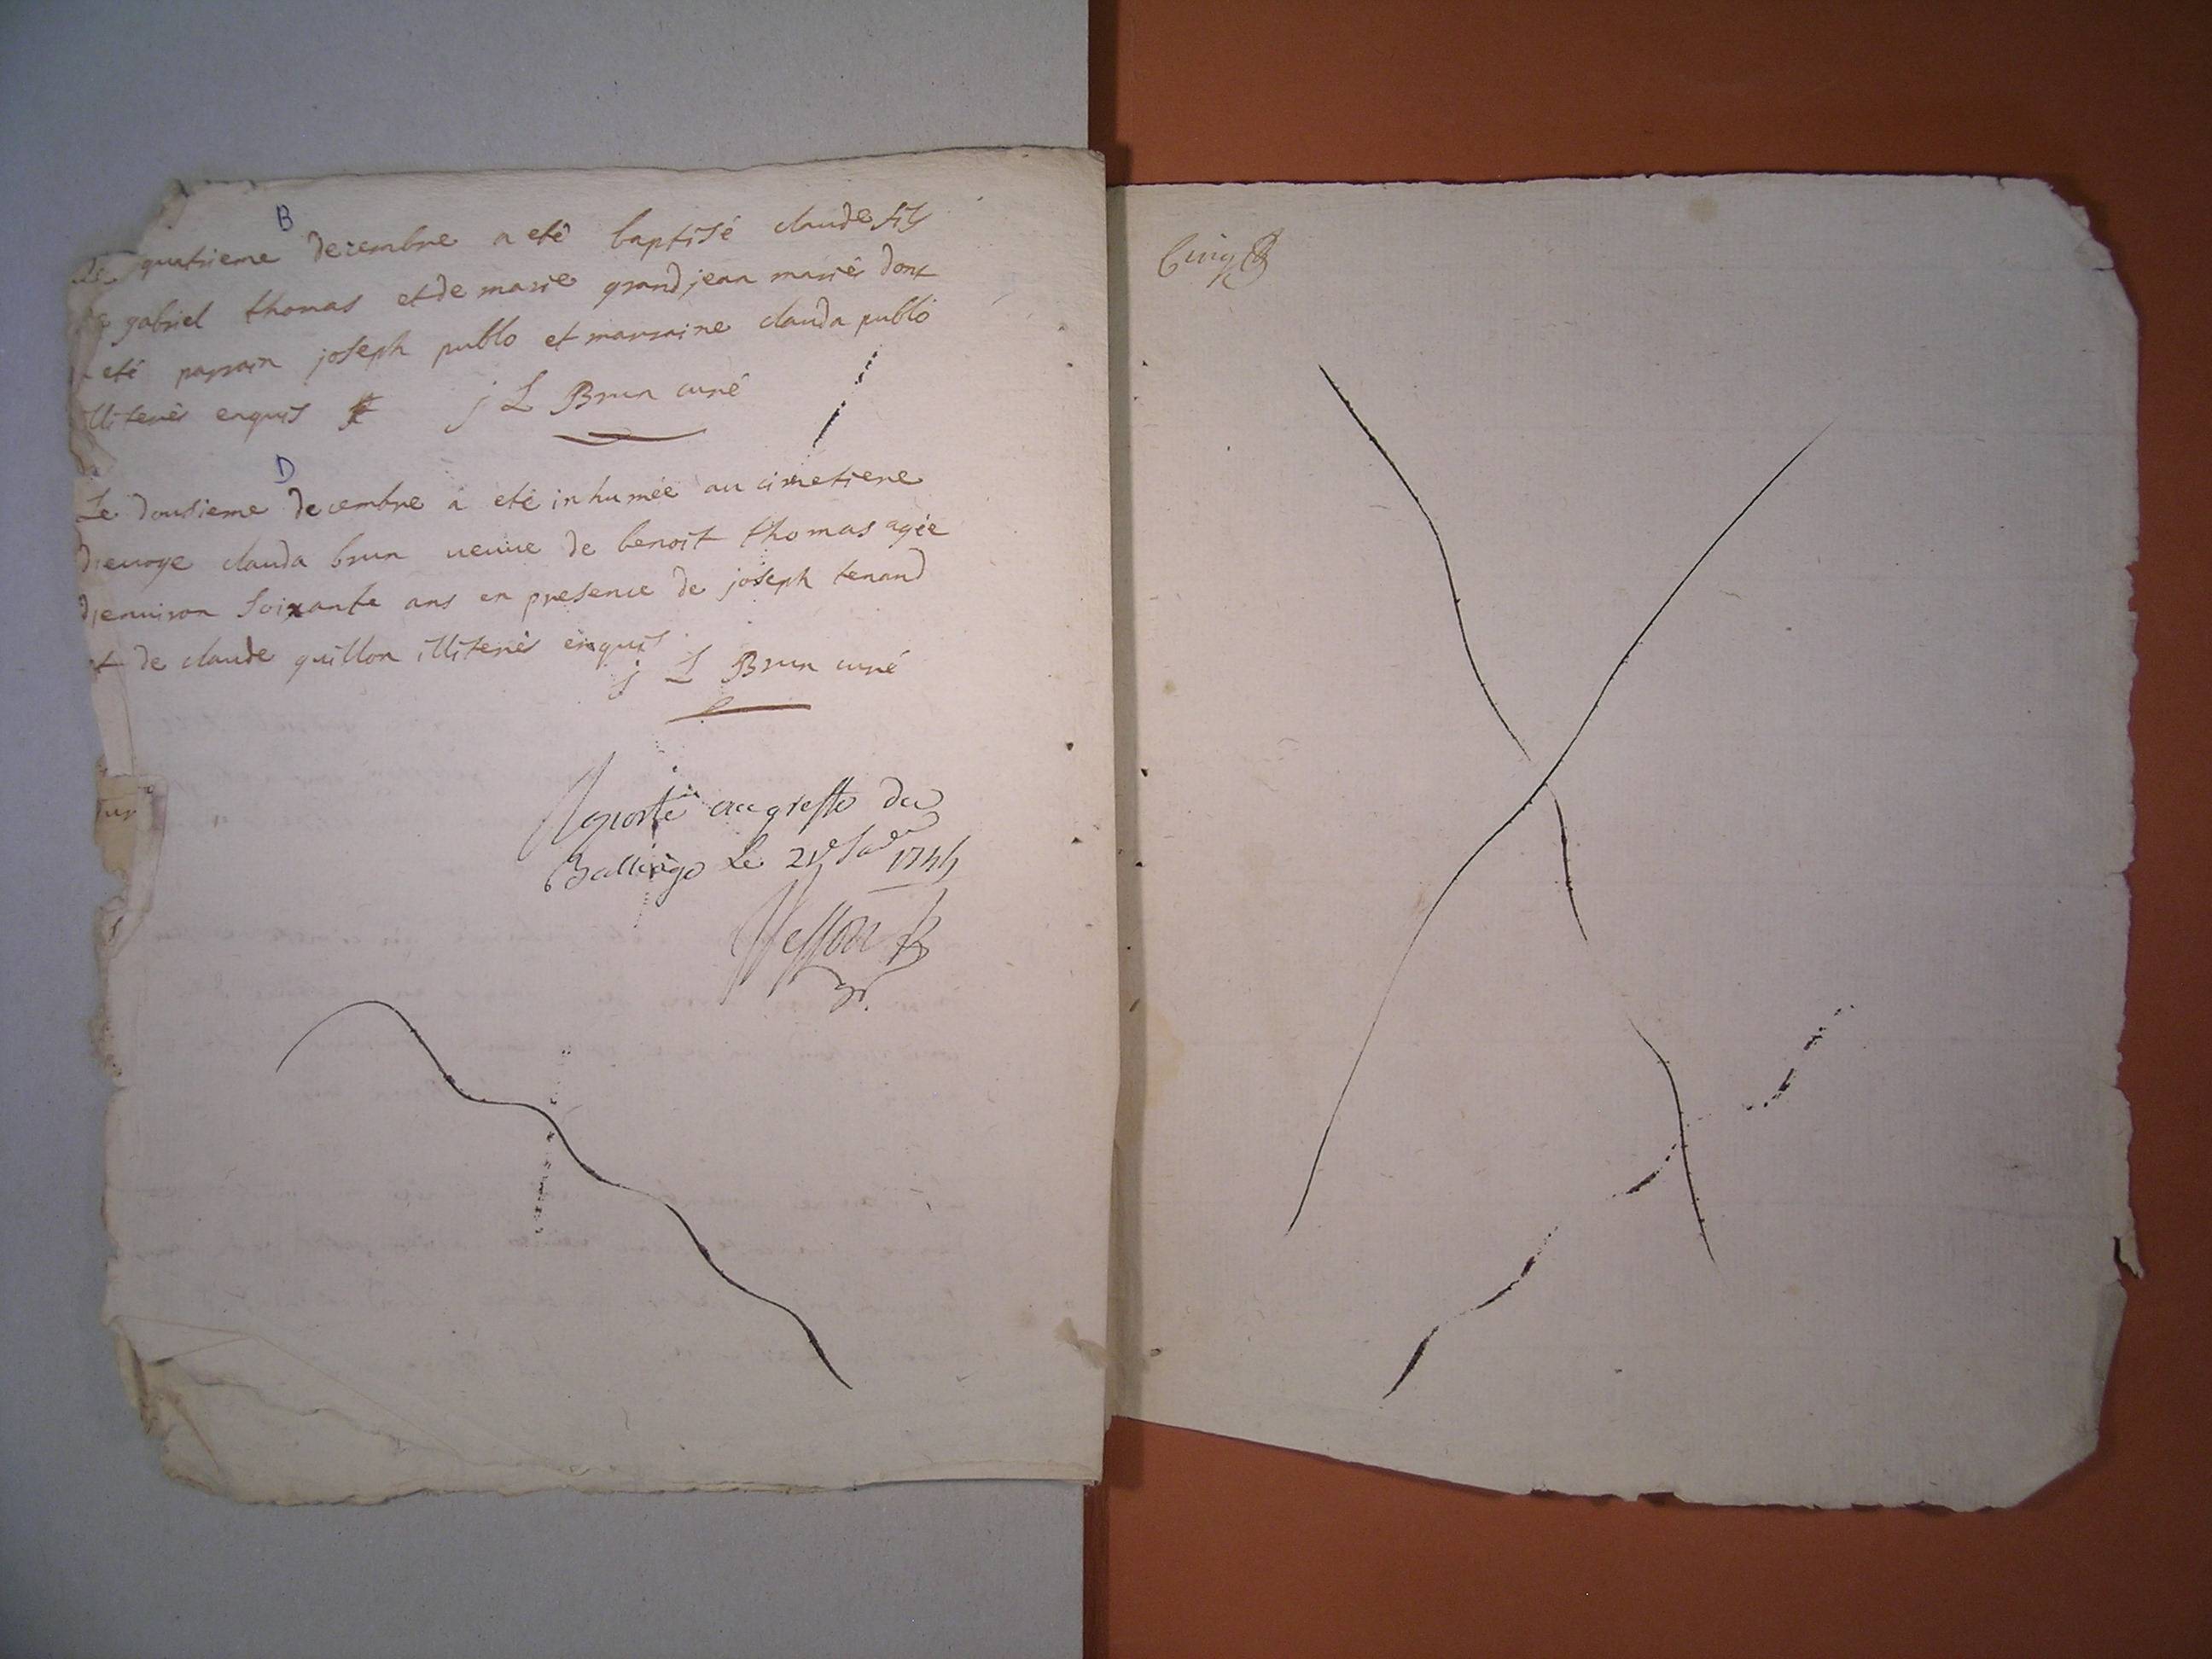 B
Le quatrieme decembre a eté baptisé claude fils
de gabriel thomas et de marie grandjean mariés dont
a eté parrain joseph publo et marraine clauda publo
illiterés enquis j L Brun curé
D
Le dousieme decembre a eté inhumée au cimetiere
drevoye clauda brun veuve de benoit thomas agée
denuiron soixante ans en presence de joseph tenand
et de claude guillon illiterés enquis
j L Brun curé
aporté au greffe du
Balliage Le
Cinq